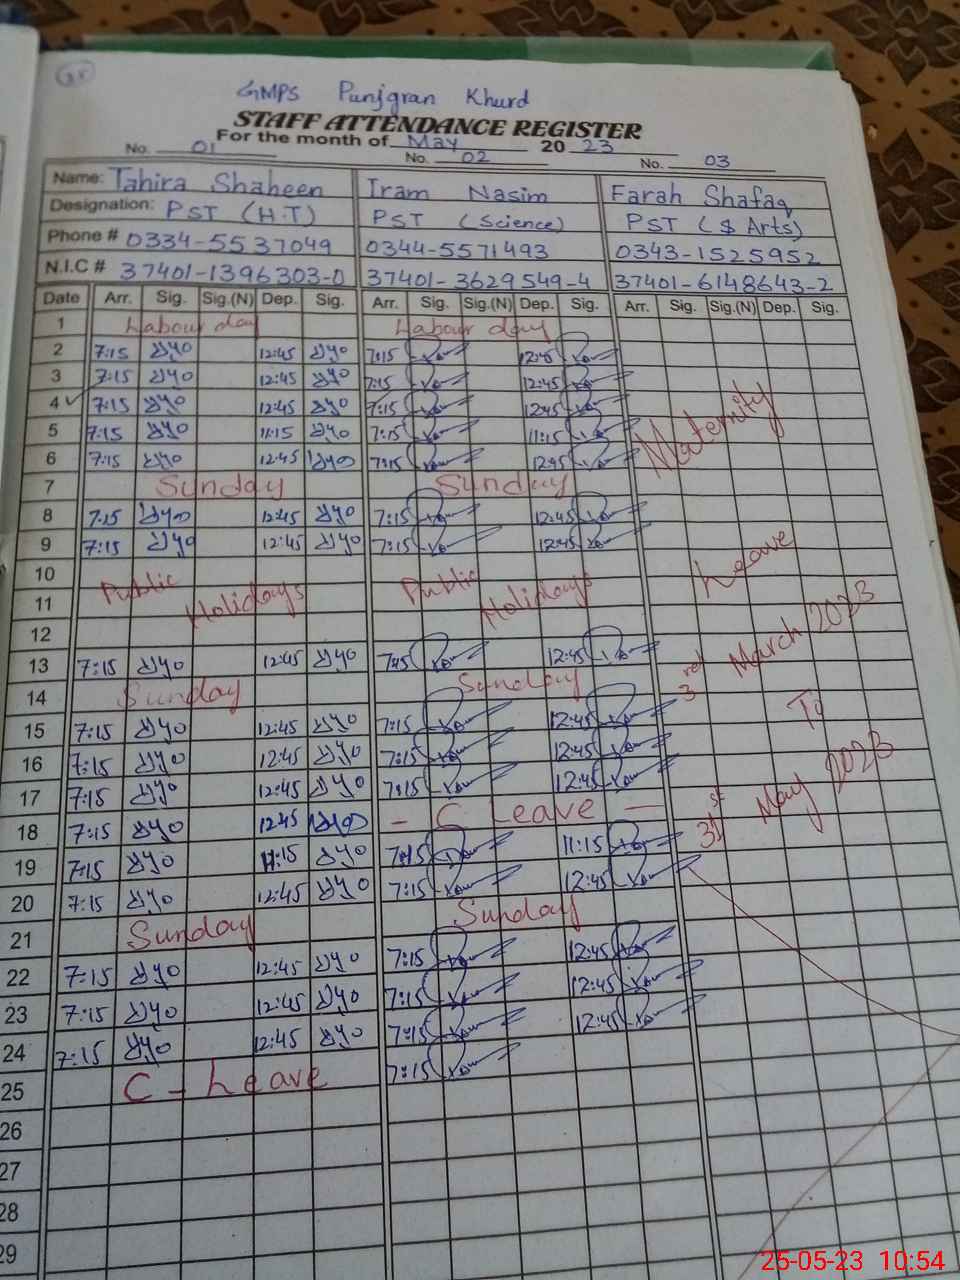 38
GMPS Punjgran Khurd
STAFF ATTENDANCE REGISTER
For the month of May 20 23
No. 01 No. 02 No. 03
Name: Tahira Shaheen Iram Nasim Farah Shafaq
Designation: PST (H.T) PST (Science) PST ( Arts)
Phone # 0334-5537049 0344-5571493 0343-1525952
N.I.C # 37401-1396303-0 37401-3629549-4 37401-6148643-2
Date Arr. Sig. Sig.(N) Dep. Sig. Arr. Sig. Sig.(N) Dep. Sig. Arr. Sig. Sig.(N) Dep. Sig.
1 Labour day Labour day
2 7:15 12:45 7:15 12:45
3 7:15 12:45 7:15 12:45
4 7:15 12:45 7:15 12:45
5 7:15 11:15 7:15 11:15
6 7:15 12:45 7:15 12:45
Maternity
7 Sunday Sunday
8 7:15 12:45 7:15 12:45
9 7:15 12:45 7:15 12:45
Leave
10 Public Public
11 Holidays Holidays
12
13 7:15 12:45 7:15 12:45
3rd March 2023
14 Sunday Sunday
To
15 7:15 12:45 7:15 12:45
16 7:15 12:45 7:15 12:45
17 7:15 12:45 7:15 12:45
31st May 2023
18 7:15 12:45 - C Leave -
19 7:15 11:15 7:15 11:15
20 7:15 12:45 7:15 12:45
21 Sunday Sunday
22 7:15 12:45 7:15 12:45
23 7:15 12:45 7:15 12:45
24 7:15 12:45 7:15 12:45
25 C - Leave 7:15
26
27
28
29
25-05-23 10:54